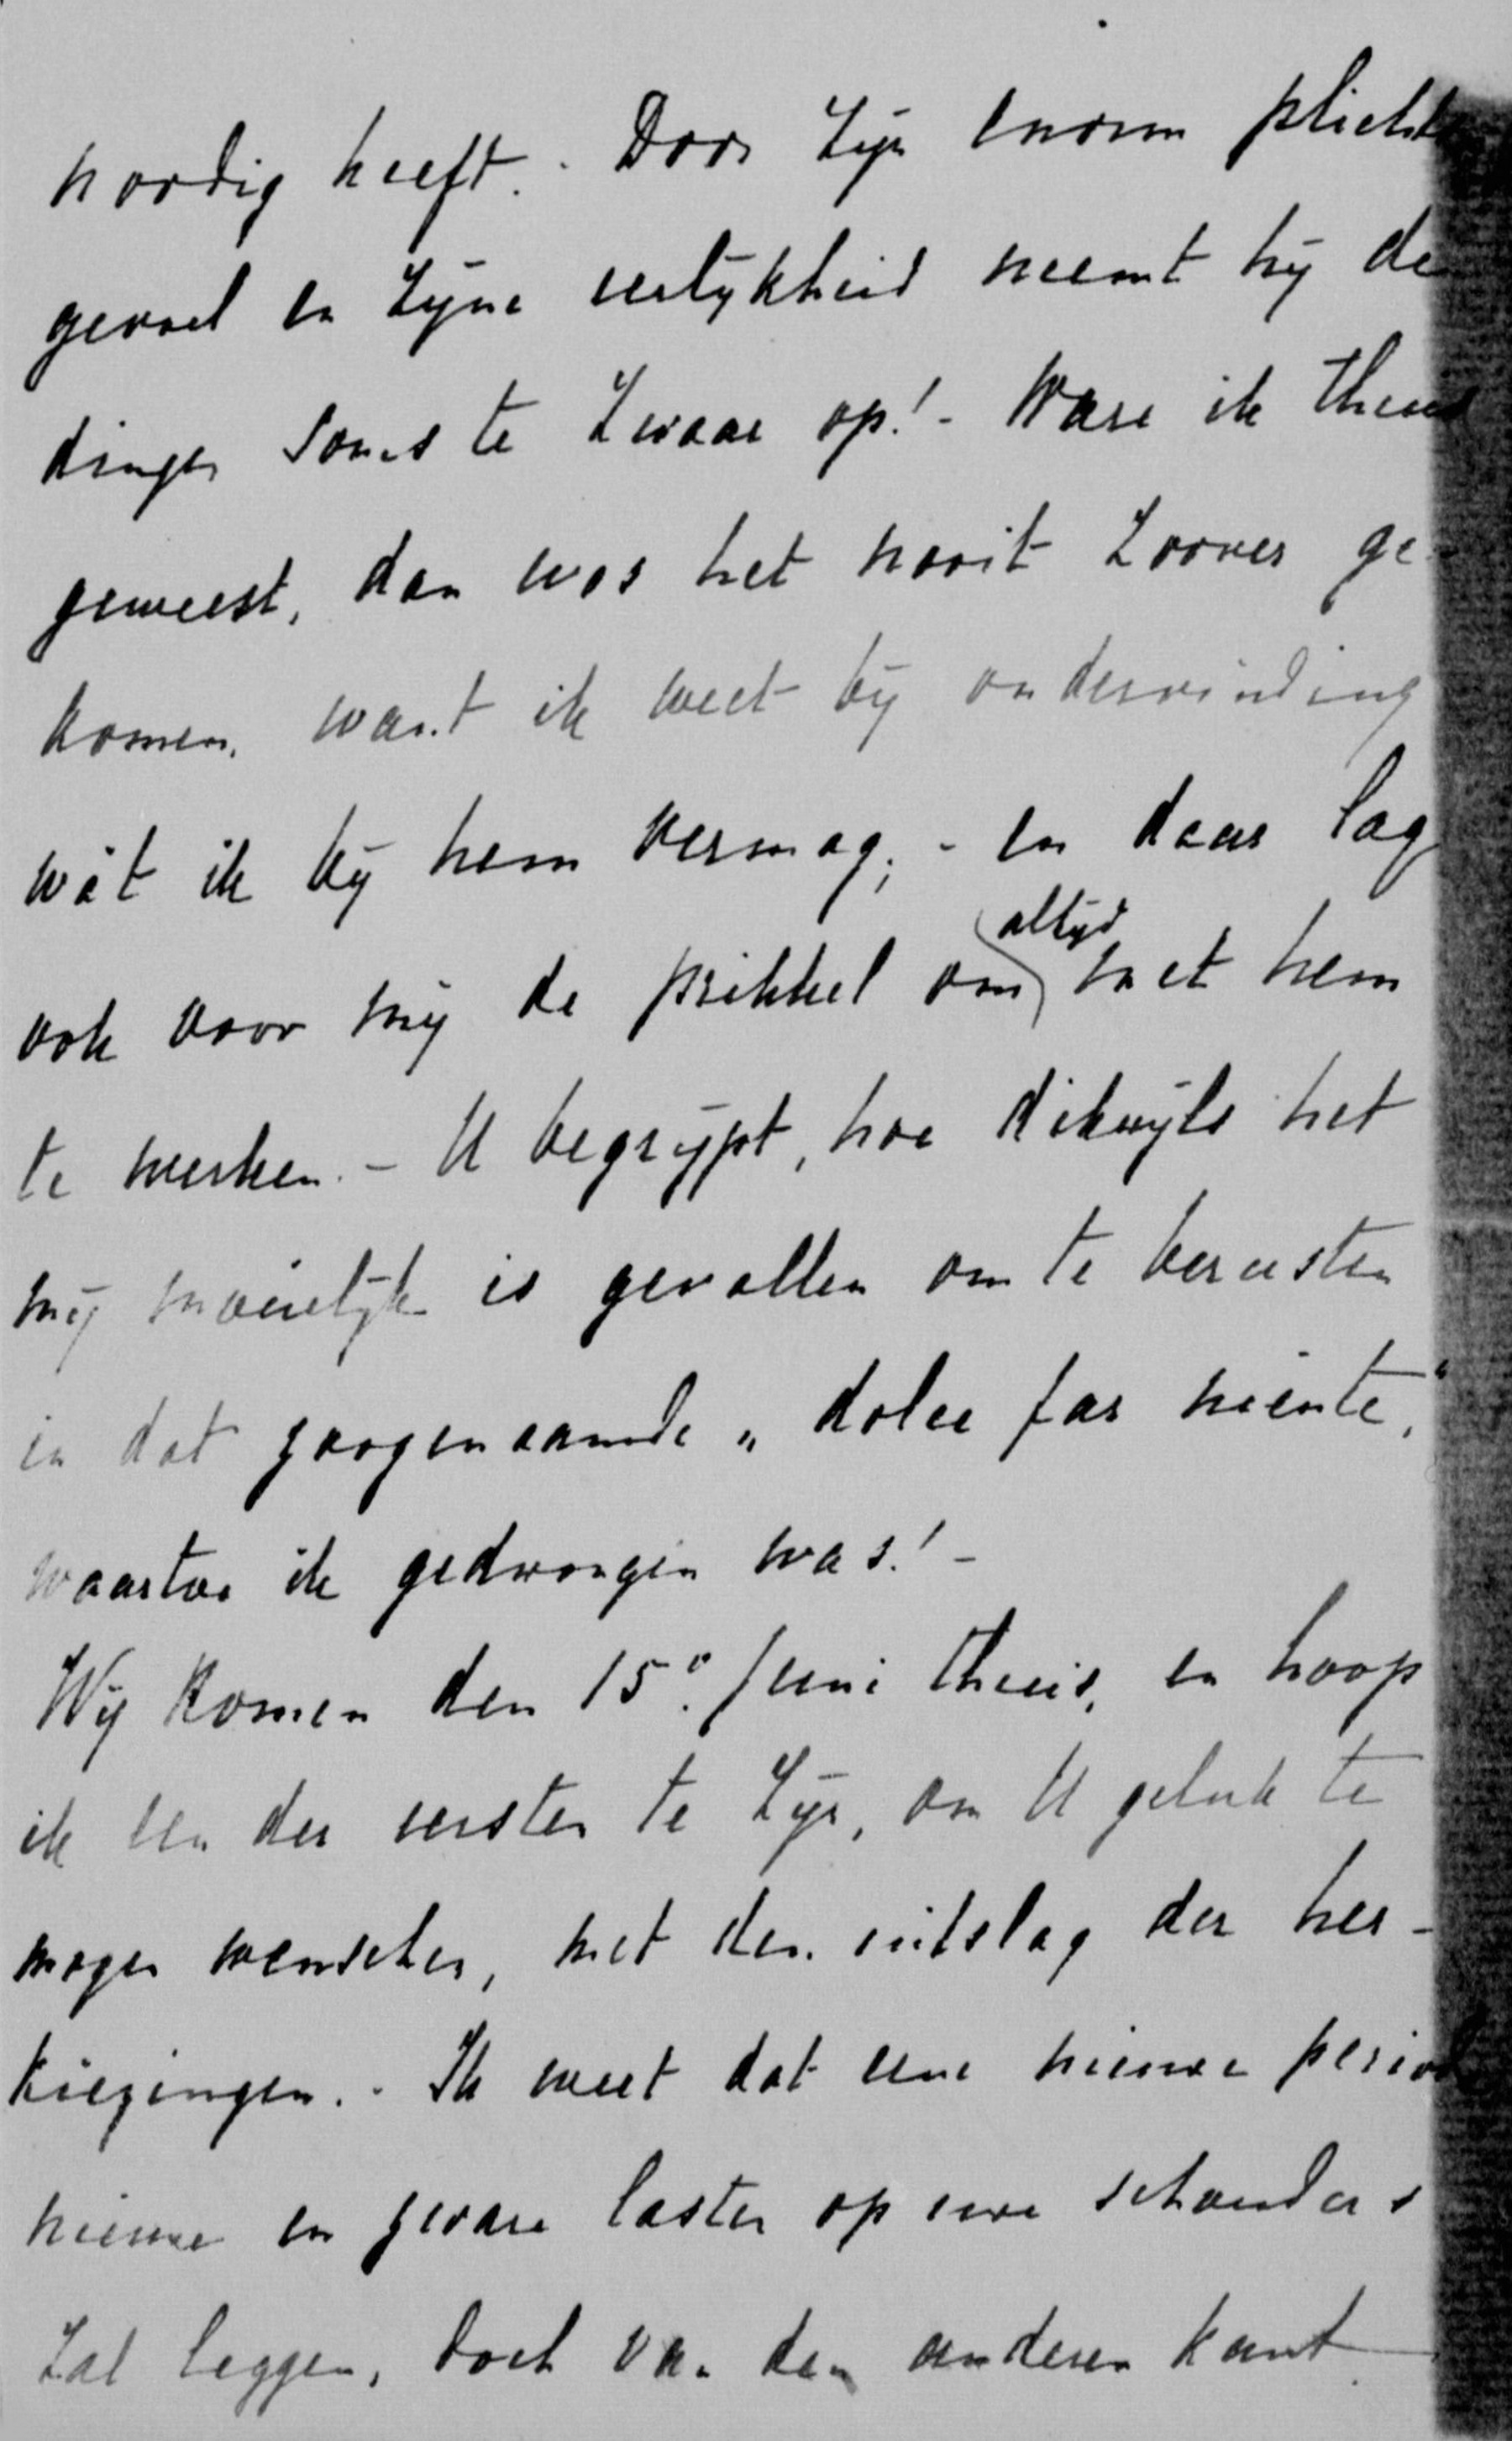 noodig heeft. - Door zijn enorm plichts
gevoel en zijne eerlijkheid neemt hij de
dingen soms te zwaar op! - Ware ik thuis
geweest, dan was het nooit zoover ge-
komen, want ik weet bij ondervinding
wàt ik bij hem vermag; - en daar lag
altijd
ook voor mij de prikkel om met hem
te werken. - U begrijpt, hoe dikwijls het
mij moeielijk is gevallen om te berusten
in dat zoogenaamde „dolce far niente,"
waartoe ik gedwongen was! -
Wij komen den 15e Juni thuis, en hoop
ik een der eersten te zijn, om U geluk te
mogen wenschen, met den uitslag der her-
kiezingen. - Ik weet dat eene nieuwe period
nieuwe en zware lasten op uwe schouders
zal leggen, doch van den anderen kant